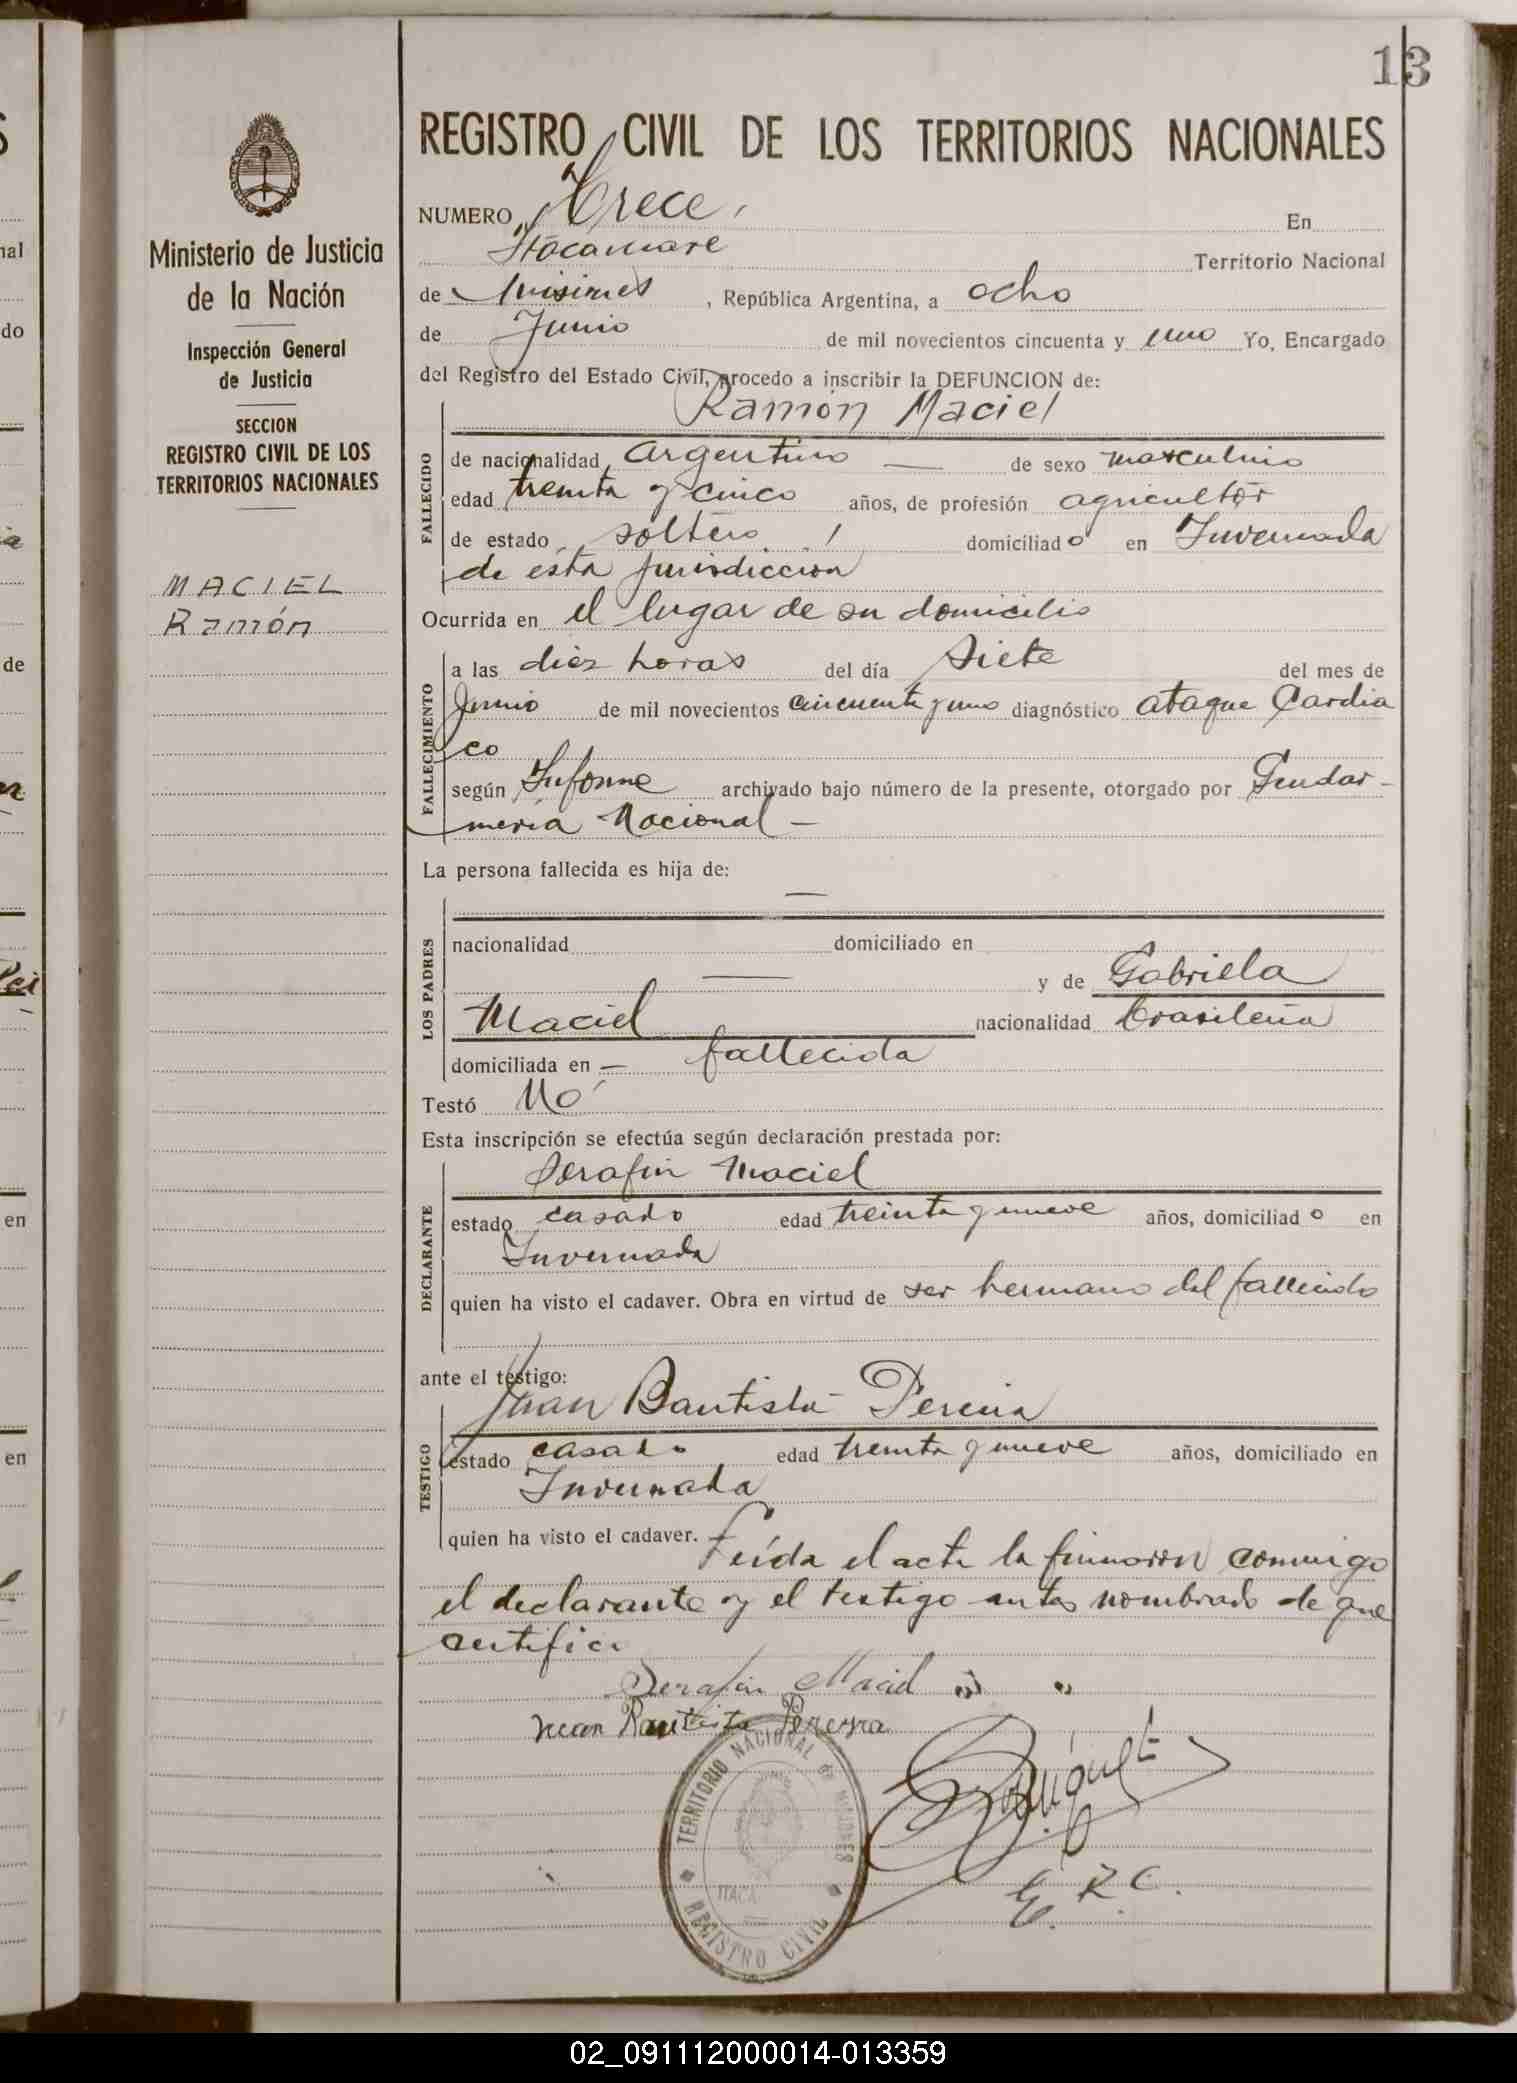 13
Ministerio de Justicia
de la Nación
Inspección General
de Justicia
SECCION
REGISTRO CIVIL DE LOS
TERRITORIOS NACIONALES
MACIEL
Ramón
REGISTRO CIVIL DE LOS TERRITORIOS NACIONALES
NUMERO Trece, En
Itacaruaré Territorio Nacional
de Misiones, República Argentina, a ocho
de Junio de mil novecientos cincuenta y uno Yo, Encargado
del Registro del Estado Civil, procedo a inscribir la DEFUNCION de:
Ramón Maciel
FALLECIDO
de nacionalidad argentino — de sexo masculino
edad treinta y cinco años, de profesión agricultor
de estado soltero domiciliado en Invernada
de esta jurisdiccion
Ocurrida en el lugar de su domicilio
FALLECIMIENTO
a las diez horas del día siete del mes de
Junio de mil novecientos cincuenta y uno diagnóstico ataque Cardia
co
según Informe archivado bajo número de la presente, otorgado por Gendar-
meria Nacional —
La persona fallecida es hija de:
—
LOS PADRES
nacionalidad domiciliado en
— y de Gabriela
Maciel nacionalidad brasileña
domiciliada en — fallecida
Testó No
Esta inscripción se efectúa según declaración prestada por:
Serafin Maciel
DECLARANTE
estado casado edad treinta y nueve años, domiciliado en
Invernada
quien ha visto el cadaver. Obra en virtud de ser hermano del fallecido
ante el testigo:
Juan Bautista Pereira
TESTIGO
estado casado edad treinta y nueve años, domiciliado en
Invernada
quien ha visto el cadaver. Leída el acta la firmaron conmigo
el declarante y el testigo antes nombrado de que
certifico
Serafin Maciel
Juan Bautista Pereyra
TERRITORIO NACIONAL DE MISIONES
ITACA
REGISTRO CIVIL
E. R. C.
02_091112000014-013359